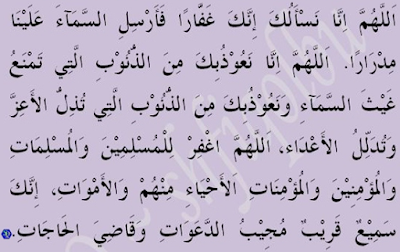 اَللّٰهُمَّ اِنَّا نَسْأَلُكَ اِنَّكَ غَفَّارًا فَأَرْسِلِ السَّمَآءَ عَلَيْنَا
مِدْرَارًا. اَللّٰهُمَّ اِنَّا نَعُوْذُبِكَ مِنَ الذُّنُوْبِ الَّتِي تَمْنَعُ
غَيْثَ السَّمَآءِ وَنَعُوْذُبِكَ مِنَ الذُّنُوْبِ الَّتِي تُذِلُّ الأَعِزَّ
وَتُدَلِّلُ الأَعْدَاءَ، اَللّٰهُمَّ اغْفِرْ لِلْمُسْلِمِيْنَ وَالْمُسْلِمَاتِ
وَالْمُؤْمِنِيْنَ وَالْمُؤْمِنَاتِ الأَحْيَاءِ مِنْهُمْ وَالأَمْوَاتِ، اِنَّكَ
سَمِيْعٌ قَرِيْبٌ مُجِيْبُ الدَّعَوَاتِ وَقَاضِي الْحَاجَاتِ.